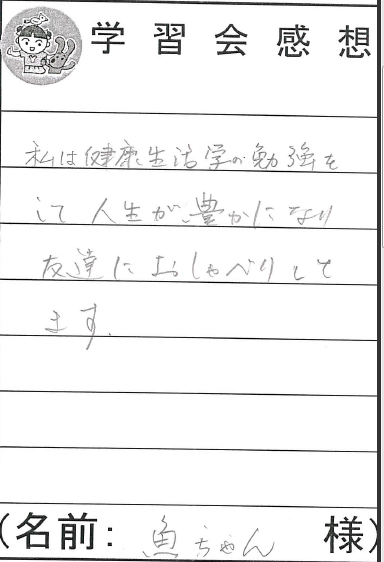 学習会感想
私は健康生活学の勉強を
して人生が豊かになり
友達におしゃべりして
ます.
(名前: 魚ちゃん 様)